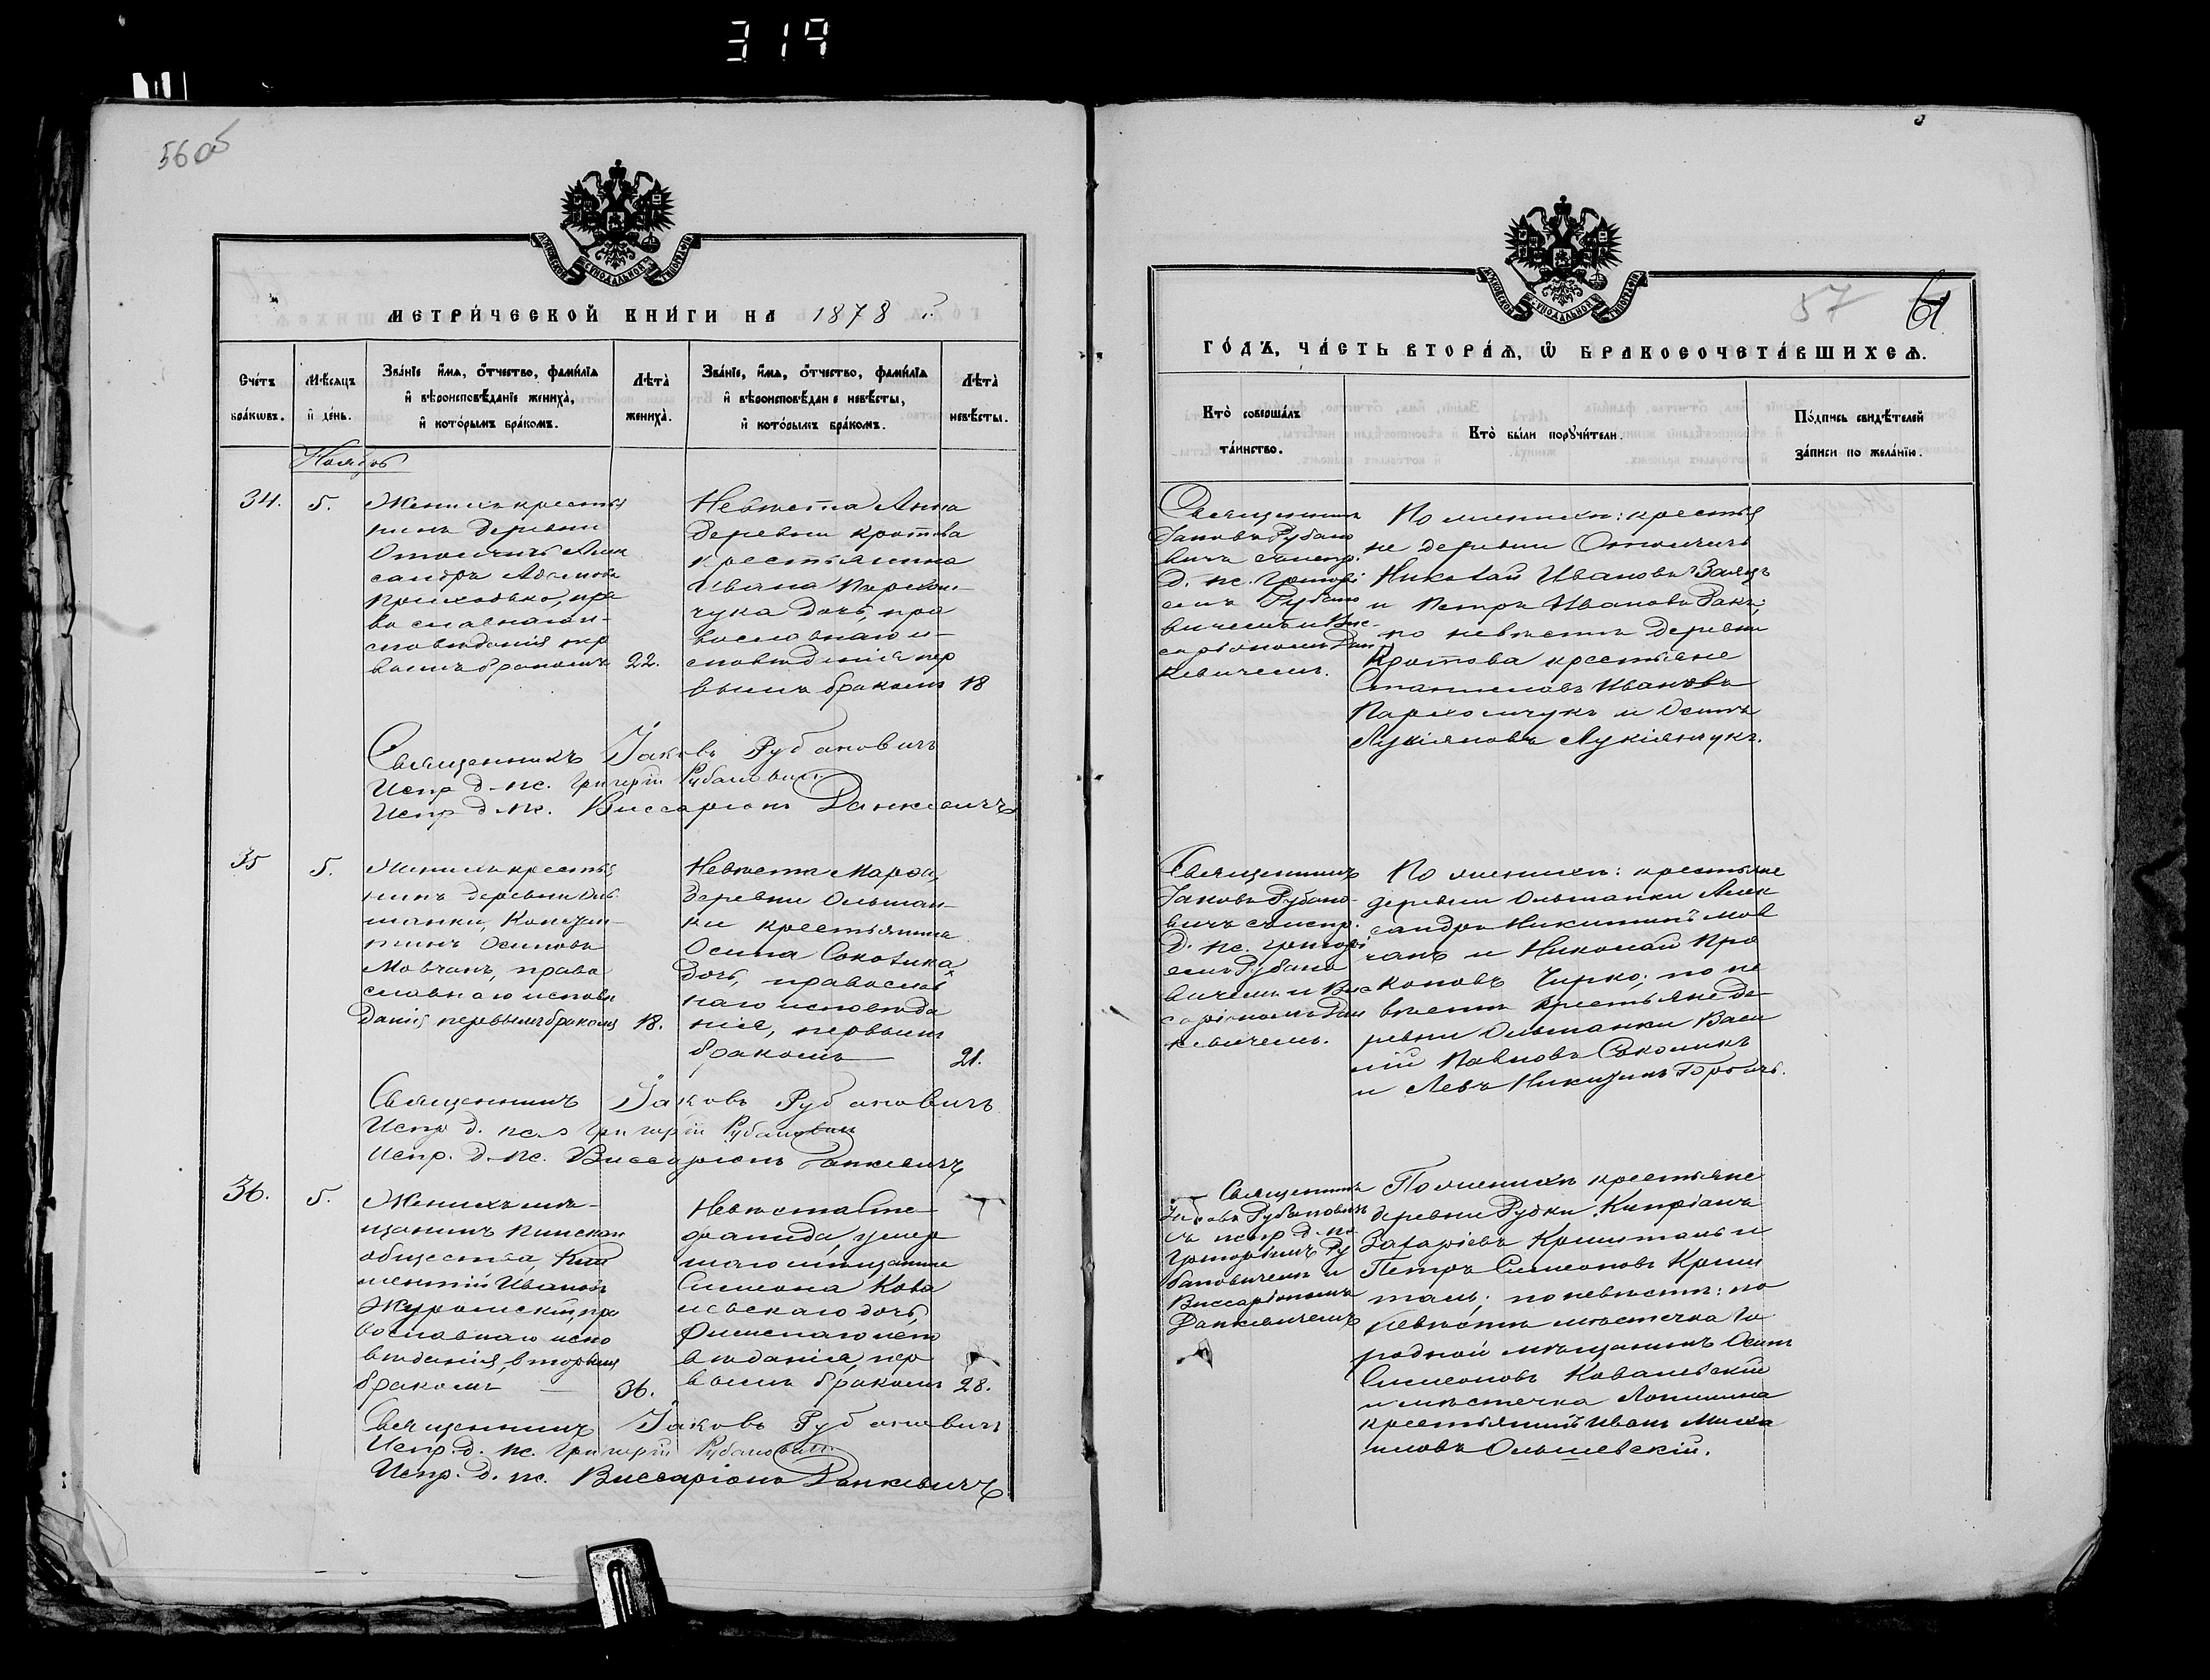 319
560б
МОСКОВСКОЙ СѴНОДАЛЬНОЙ ТИПОГРАФІИ
МЕТРИ́ЧЕСКОЙ КНИ́ГИ НА 1878 г.
Сче́тъ бра́кѡвъ.
Мѣ́сяцъ и де́нь.
Зва́ніе и́мя, о́тчество, фами́лія и вѣроисповѣ́даніе жениха̀, и кото́рымъ бра́комъ.
Лѣ́та жениха̀.
Зва́ніе, и́мя, о́тчество, фами́лія и вѣроисповѣ́даніе невѣ́сты, и кото́рымъ бра́комъ.
Лѣ́та невѣ́сты.
Ноябрь
34.
5.
Женихъ крестья
нинъ деревни
Отолчичь Алек
сандръ Адамовъ
Приходько, пра
вославнаго и-
сповѣданія пер
вымъ бракомъ
22.
Невѣста Анна
деревни Кротова
крестьянина
Ивана Пархом-
чука дочь, пра
вославнаго и-
сповѣданія пер
вымъ бракомъ
18
Священникъ Іаковъ Рубановичъ
Испр. д. пс. Григорій Рубановичъ
Испр. д. пс. Виссаріонъ Данкевичъ
35
5.
Женихъ крестья
нинъ деревни Оль
шанки, Констан
тинъ Осиповъ
Мовчанъ, право
славнаго исповѣ
данія первымъ бракомъ
18.
Невѣста Марѳа,
деревни Ольшан-
ки крестьянина
Осипа Соколика
дочь, православ
наго исповѣда
нія, первымъ
бракомъ
21.
Священникъ Іаковъ Рубановичъ
Испр. д. пс. Григорій Рубановичъ
Испр. д. пс. Виссаріонъ Данкевичъ
36.
5.
Женихъ мѣ-
щанинъ Пинскаго
общества, Кли
ментій Ивановъ
Журомскій, пра
вославнаго испо
вѣданія, вторымъ
бракомъ
36.
Невѣста Сте-
фанида, умер
шаго мѣщанина
Симеона Кова
левскаго дочь,
Римскаго испо
вѣданія, пер
вымъ бракомъ
28.
Священникъ Іаковъ Рубановичъ
Испр. д. пс. Григорій Рубановичъ
Испр. д. пс. Виссаріонъ Данкевичъ
57
61
МОСКОВСКОЙ СѴНОДАЛЬНОЙ ТИПОГРАФІИ
ГО́ДЪ, ЧА́СТЬ ВТОРА́Я, Ѡ БРАКОСОЧЕТА́ВШИХСЯ.
Кто̀ соверша́лъ та́инство.
Кто̀ бы́ли пору́чители.
По́дпись свидѣ́телей за́писи по жела́нію.
Священникъ
Іаковъ Рубано
вичъ съ испр.
д. пс. Григорі
емъ Рубано
вичемъ и Вис-
саріономъ Дан
кевичемъ.
По женихѣ: крестья
не деревни Отолчичь
Николай Ивановъ Заяцъ
и Петръ Ивановъ Ракъ;
по невѣстѣ деревни
Кротова крестьяне
Станиславъ Ивановъ
Пархомчукъ и Осипъ
Лукіяновъ Лукіянчукъ.
Священникъ
Іаковъ Рубано-
вичъ съ испр.
д. пс. Григорі
емъ Рубано
вичемъ и Вис
саріономъ Дан
кевичемъ.
По женихѣ: крестьяне
деревни Ольшанки Алек
сандръ Никитинъ Мов
чанъ и Николай Про
коповъ Чирко; по не
вѣстѣ крестьяне де-
ревни Ольшанки Васи
лій Павловъ Соколикъ
и Левъ Никитинъ
Священникъ
Іаковъ Рубановичъ
съ испр. д. пс.
Григоріемъ Ру
бановичемъ и
Виссаріономъ
Данкевичемъ
По женихѣ крестьяне
деревни Рудки Кипріанъ
Захаріевъ Кришталь и
Петръ Симеоновъ Криш
таль; по невѣстѣ: по
невѣстѣ мѣстечка Го
родной мѣщанинъ Осипъ
Симеоновъ Ковалевскій
и мѣстечка Логишина
крестьянинъ Иванъ Миха
иловъ Ольшевскій.